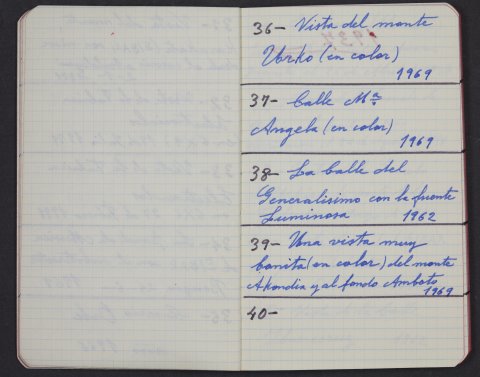 36- Vista del monte
Urko (en color)
1969
37- Calle Mª
Angela (en color)
1969
38- La Calle del
Generalisimo con la fuente
Luminosa 1962
39- Una vista muy
bonita (en color) del monte
Akondia y al fondo Amboto
1969
40-